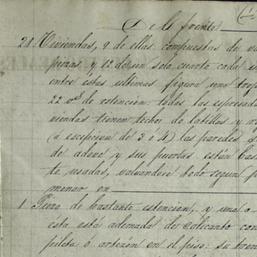 Del frente
21 Viviendas, 9 de ellas compuestas de va
piezas y 12 de un solo cuarto cada u
entre estas ultimas figura una tro
22 vs de estencion: todas las espresada
viendas tienen techos de tabletas y
(a escepcion de 3 ó 4) las paredes
de adove y sus puertas están bas
te usadas, valuandose todo segun
menor en
1 Pieza de bastante estencion, y una
esta está ademada de calicanto con
pileta ó artezon en el piso: su